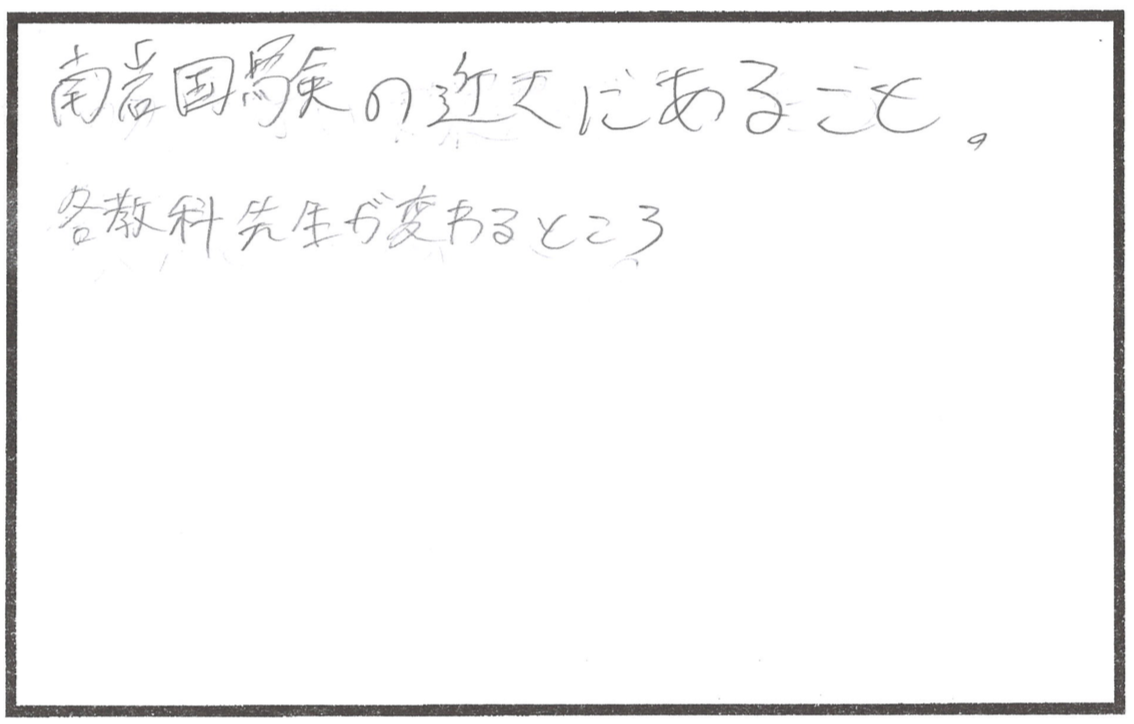 南岩国験の近くにあること。
各教科先生が変わるところ